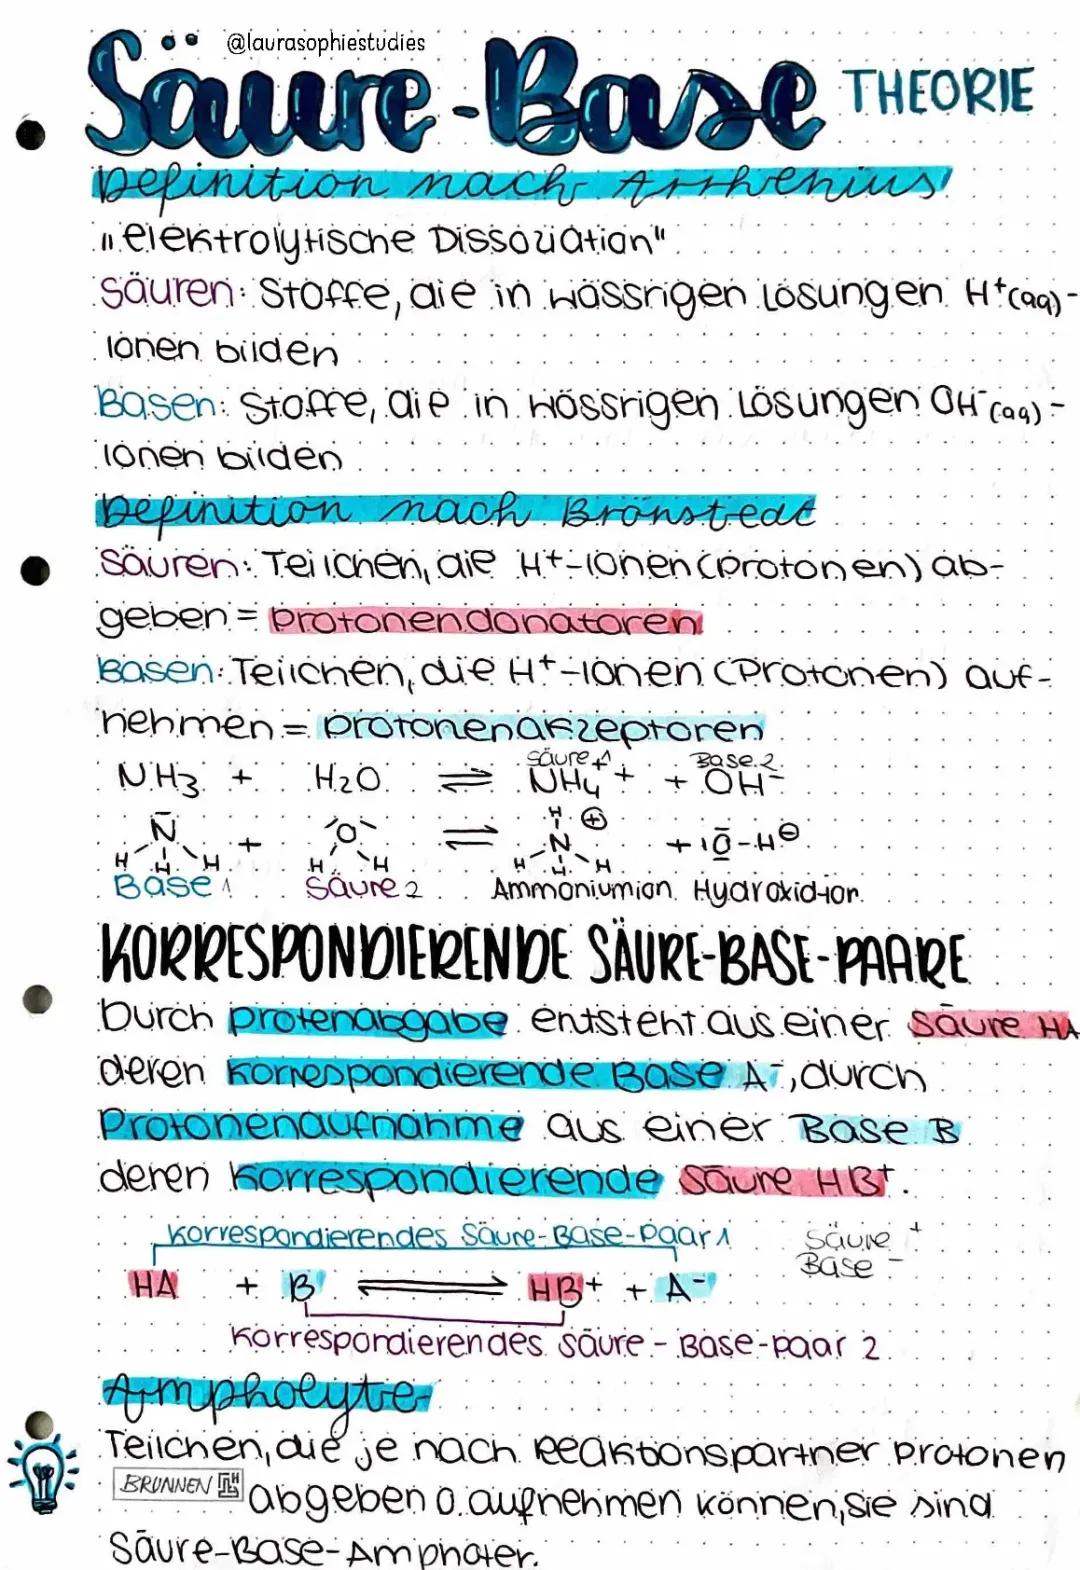 @laurasophiestudies
Säure-Base THEORIE
Definition nach Arrhenius:
"elektrolytische Dissoziation"
Säuren: Stoffe, die in wässrigen Lösungen H⁺(aq)-
Ionen bilden
Basen: Stoffe, die in wässrigen Lösungen OH⁻(aq)-
Ionen bilden
Definition nach Brönstedt
Säuren: Teilchen, die H⁺-Ionen (Protonen) ab-
geben = Protonendonatoren
Basen: Teilchen, die H⁺-Ionen (Protonen) auf-
nehmen = Protonenakzeptoren
Säure 1 Base 2
NH₃ + H₂O ⇌ NH₄⁺ + OH⁻
H ⊕
N + O ⇌ N + |O-H⊖
H H H H H H H H
Base 1 Säure 2 Ammoniumion Hydroxidion
KORRESPONDIERENDE SÄURE-BASE-PAARE
Durch Protenabgabe entsteht aus einer Säure HA
deren korrespondierende Base A⁻, durch
Protonenaufnahme aus einer Base B
deren korrespondierende Säure HB⁺.
korrespondierendes Säure-Base-Paar 1 Säure +
Base -
HA + B ⇌ HB⁺ + A⁻
Korrespondierendes Säure-Base-Paar 2
Ampholyte
Teilchen, die je nach Reaktionspartner Protonen
BRUNNEN
abgeben o. aufnehmen können, sie sind
Säure-Base-Amphoter.